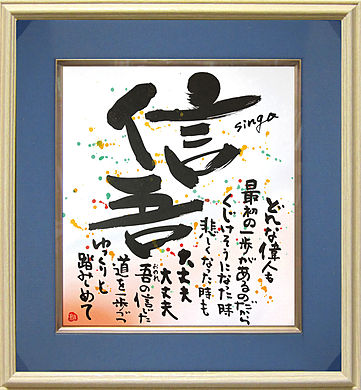 信吾
singo
どんな偉人も
最初の一歩があるのだから
くじけそうになった時
悲しくなった時も
大丈夫
大丈夫
吾の信じた
われ
道を一歩づつ
ゆっくりと
踏みしめて